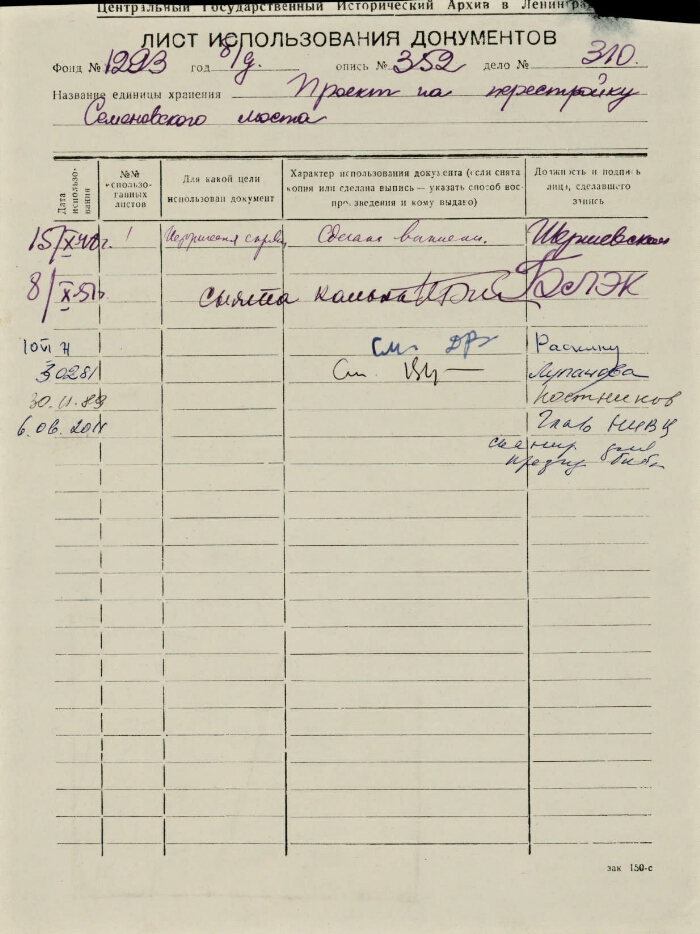 Центральный Государственный Исторический Архив в
ЛИСТ ИСПОЛЬЗОВАНИЯ ДОКУМЕНТОВ
Фонд № 1293 год б/д. опись № 352 дело № 310.
Название единицы хранения Проект на перестройку
Семеновского моста
Дата использо-вания
№№ использо-ванных листов
Для какой цели использован документ
Характер использования документа (если снята копия или сделана выпись — указать способ вос-произведения и кому выдано)
Должность и подпись лица, сделавшего запись
15/X 1 Сделаны выписки.
8/X снята калька
См.
30281 См.
30.11.89 Постников
6.06.2011 Глав НИВЦ
сканир для
зак 150-с